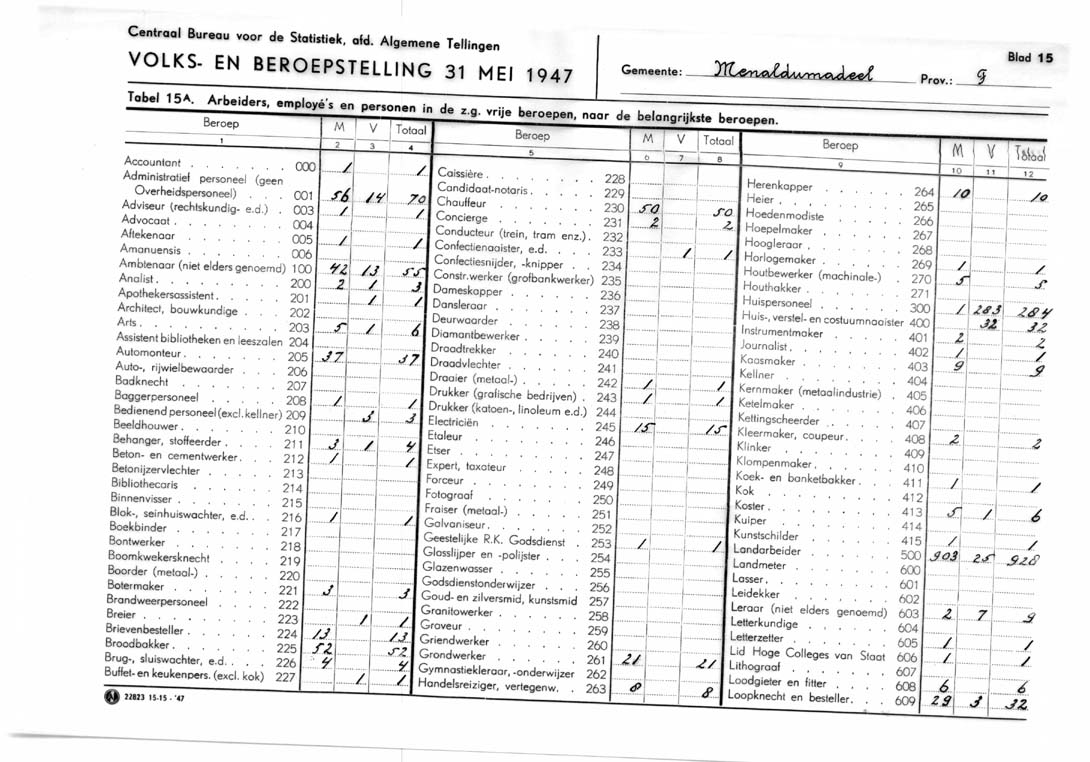 Centraal Bureau voor de Statistiek, afd. Algemene Tellingen
VOLKS- EN BEROEPSTELLING 31 MEI 1947
Gemeente: Menaldumadeel Prov.: F
Blad 15
Tabel 15A. Arbeiders, employé's en personen in de z.g. vrije beroepen, naar de belangrijkste beroepen.
Beroep M V Totaal
1 2 3 4
Accountant . . . . . . 000 1 1
Administratief personeel (geen
Overheidspersoneel) . . . 001 56 14 70
Adviseur (rechtskundig- e.d.) . 003 1 1
Advocaat . . . . . . . 004
Aftekenaar . . . . . . 005 1 1
Amanuensis . . . . . . 006
Ambtenaar (niet elders genoemd) 100 42 13 55
Analist . . . . . . . . 200 2 1 3
Apothekersassistent . . . . 201 1 1
Architect, bouwkundige . . . 202
Arts . . . . . . . . . 203 5 1 6
Assistent bibliotheken en leeszalen 204
Automonteur . . . . . . 205 37 37
Auto-, rijwielbewaarder . . . 206
Badknecht . . . . . . 207
Baggerpersoneel . . . . . 208 1 1
Bedienend personeel (excl. kellner) 209 3 3
Beeldhouwer . . . . . . 210
Behanger, stoffeerder . . . . 211 3 1 4
Beton- en cementwerker . . . 212 1 1
Betonijzervlechter . . . . . 213
Bibliothecaris . . . . . . 214
Binnenvisser . . . . . . 215
Blok-, seinhuiswachter, e.d. . . 216 1 1
Boekbinder . . . . . . 217
Bontwerker . . . . . . 218
Boomkwekersknecht . . . . 219
Boorder (metaal-) . . . . . 220
Botermaker . . . . . . 221 3 3
Brandweerpersoneel . . . . 222
Breier . . . . . . . . 223 1 1
Brievenbesteller . . . . . 224 13 13
Broodbakker . . . . . . 225 52 52
Brug-, sluiswachter, e.d. . . . 226 4 4
Buffet- en keukenpers. (excl. kok) 227 1 1
Beroep M V Totaal
5 6 7 8
Caissière . . . . . . . 228
Candidaat-notaris . . . . . 229
Chauffeur . . . . . . . 230 50 50
Concierge . . . . . . 231 2 2
Conducteur (trein, tram enz.) . 232
Confectienaaister, e.d. . . . 233 1 1
Confectiesnijder, -knipper . . 234
Constr.werker (grofbankwerker) 235
Dameskapper . . . . . . 236
Dansleraar . . . . . . 237
Deurwaarder . . . . . . 238
Diamantbewerker . . . . . 239
Draadtrekker . . . . . . 240
Draadvlechter . . . . . . 241
Draaier (metaal-) . . . . . 242 1 1
Drukker (grafische bedrijven) . 243 1 1
Drukker (katoen-, linoleum e.d.) 244
Electriciën . . . . . . 245 15 15
Etaleur . . . . . . . 246
Etser . . . . . . . . 247
Expert, taxateur . . . . . 248
Forceur . . . . . . . 249
Fotograaf . . . . . . 250
Fraiser (metaal-) . . . . . 251
Galvaniseur . . . . . . 252
Geestelijke R.K. Godsdienst . 253 1 1
Glasslijper en -polijster . . . 254
Glazenwasser . . . . . . 255
Godsdienstonderwijzer . . . 256
Goud- en zilversmid, kunstsmid 257
Granitowerker . . . . . . 258
Graveur . . . . . . . 259
Griendwerker . . . . . . 260
Grondwerker . . . . . . 261 21 21
Gymnastiekleraar, -onderwijzer 262
Handelsreiziger, vertegenw. . 263 8 8
Beroep M V Totaal
9 10 11 12
Herenkapper . . . . . . 264 10 10
Heier . . . . . . . . 265
Hoedenmodiste . . . . . 266
Hoepelmaker . . . . . . 267
Hoogleraar . . . . . . 268
Horlogemaker . . . . . . 269 1 1
Houtbewerker (machinale-) . . 270 5 5
Houthakker . . . . . . 271
Huispersoneel . . . . . . 300 1 283 284
Huis-, verstel- en costuumnaaister 400 32 32
Instrumentmaker . . . . . 401 2 2
Journalist . . . . . . . 402 1 1
Kaasmaker . . . . . . 403 9 9
Kellner . . . . . . . 404
Kernmaker (metaalindustrie) . 405
Ketelmaker . . . . . . 406
Kettingscheerder . . . . . 407
Kleermaker, coupeur . . . . 408 2 2
Klinker . . . . . . . . 409
Klompenmaker . . . . . . 410
Koek- en banketbakker . . . 411 1 1
Kok . . . . . . . . . 412
Koster . . . . . . . . 413 5 1 6
Kuiper . . . . . . . . 414
Kunstschilder . . . . . . 415 1 1
Landarbeider . . . . . . 500 903 25 928
Landmeter . . . . . . 600
Lasser . . . . . . . . 601
Leidekker . . . . . . . 602
Leraar (niet elders genoemd) 603 2 7 9
Letterkundige . . . . . . 604
Letterzetter . . . . . . 605 1 1
Lid Hoge Colleges van Staat 606 1 1
Lithograaf . . . . . . 607
Loodgieter en fitter . . . . 608 6 6
Loopknecht en besteller . . . 609 29 3 32
22823 15-15 - '47